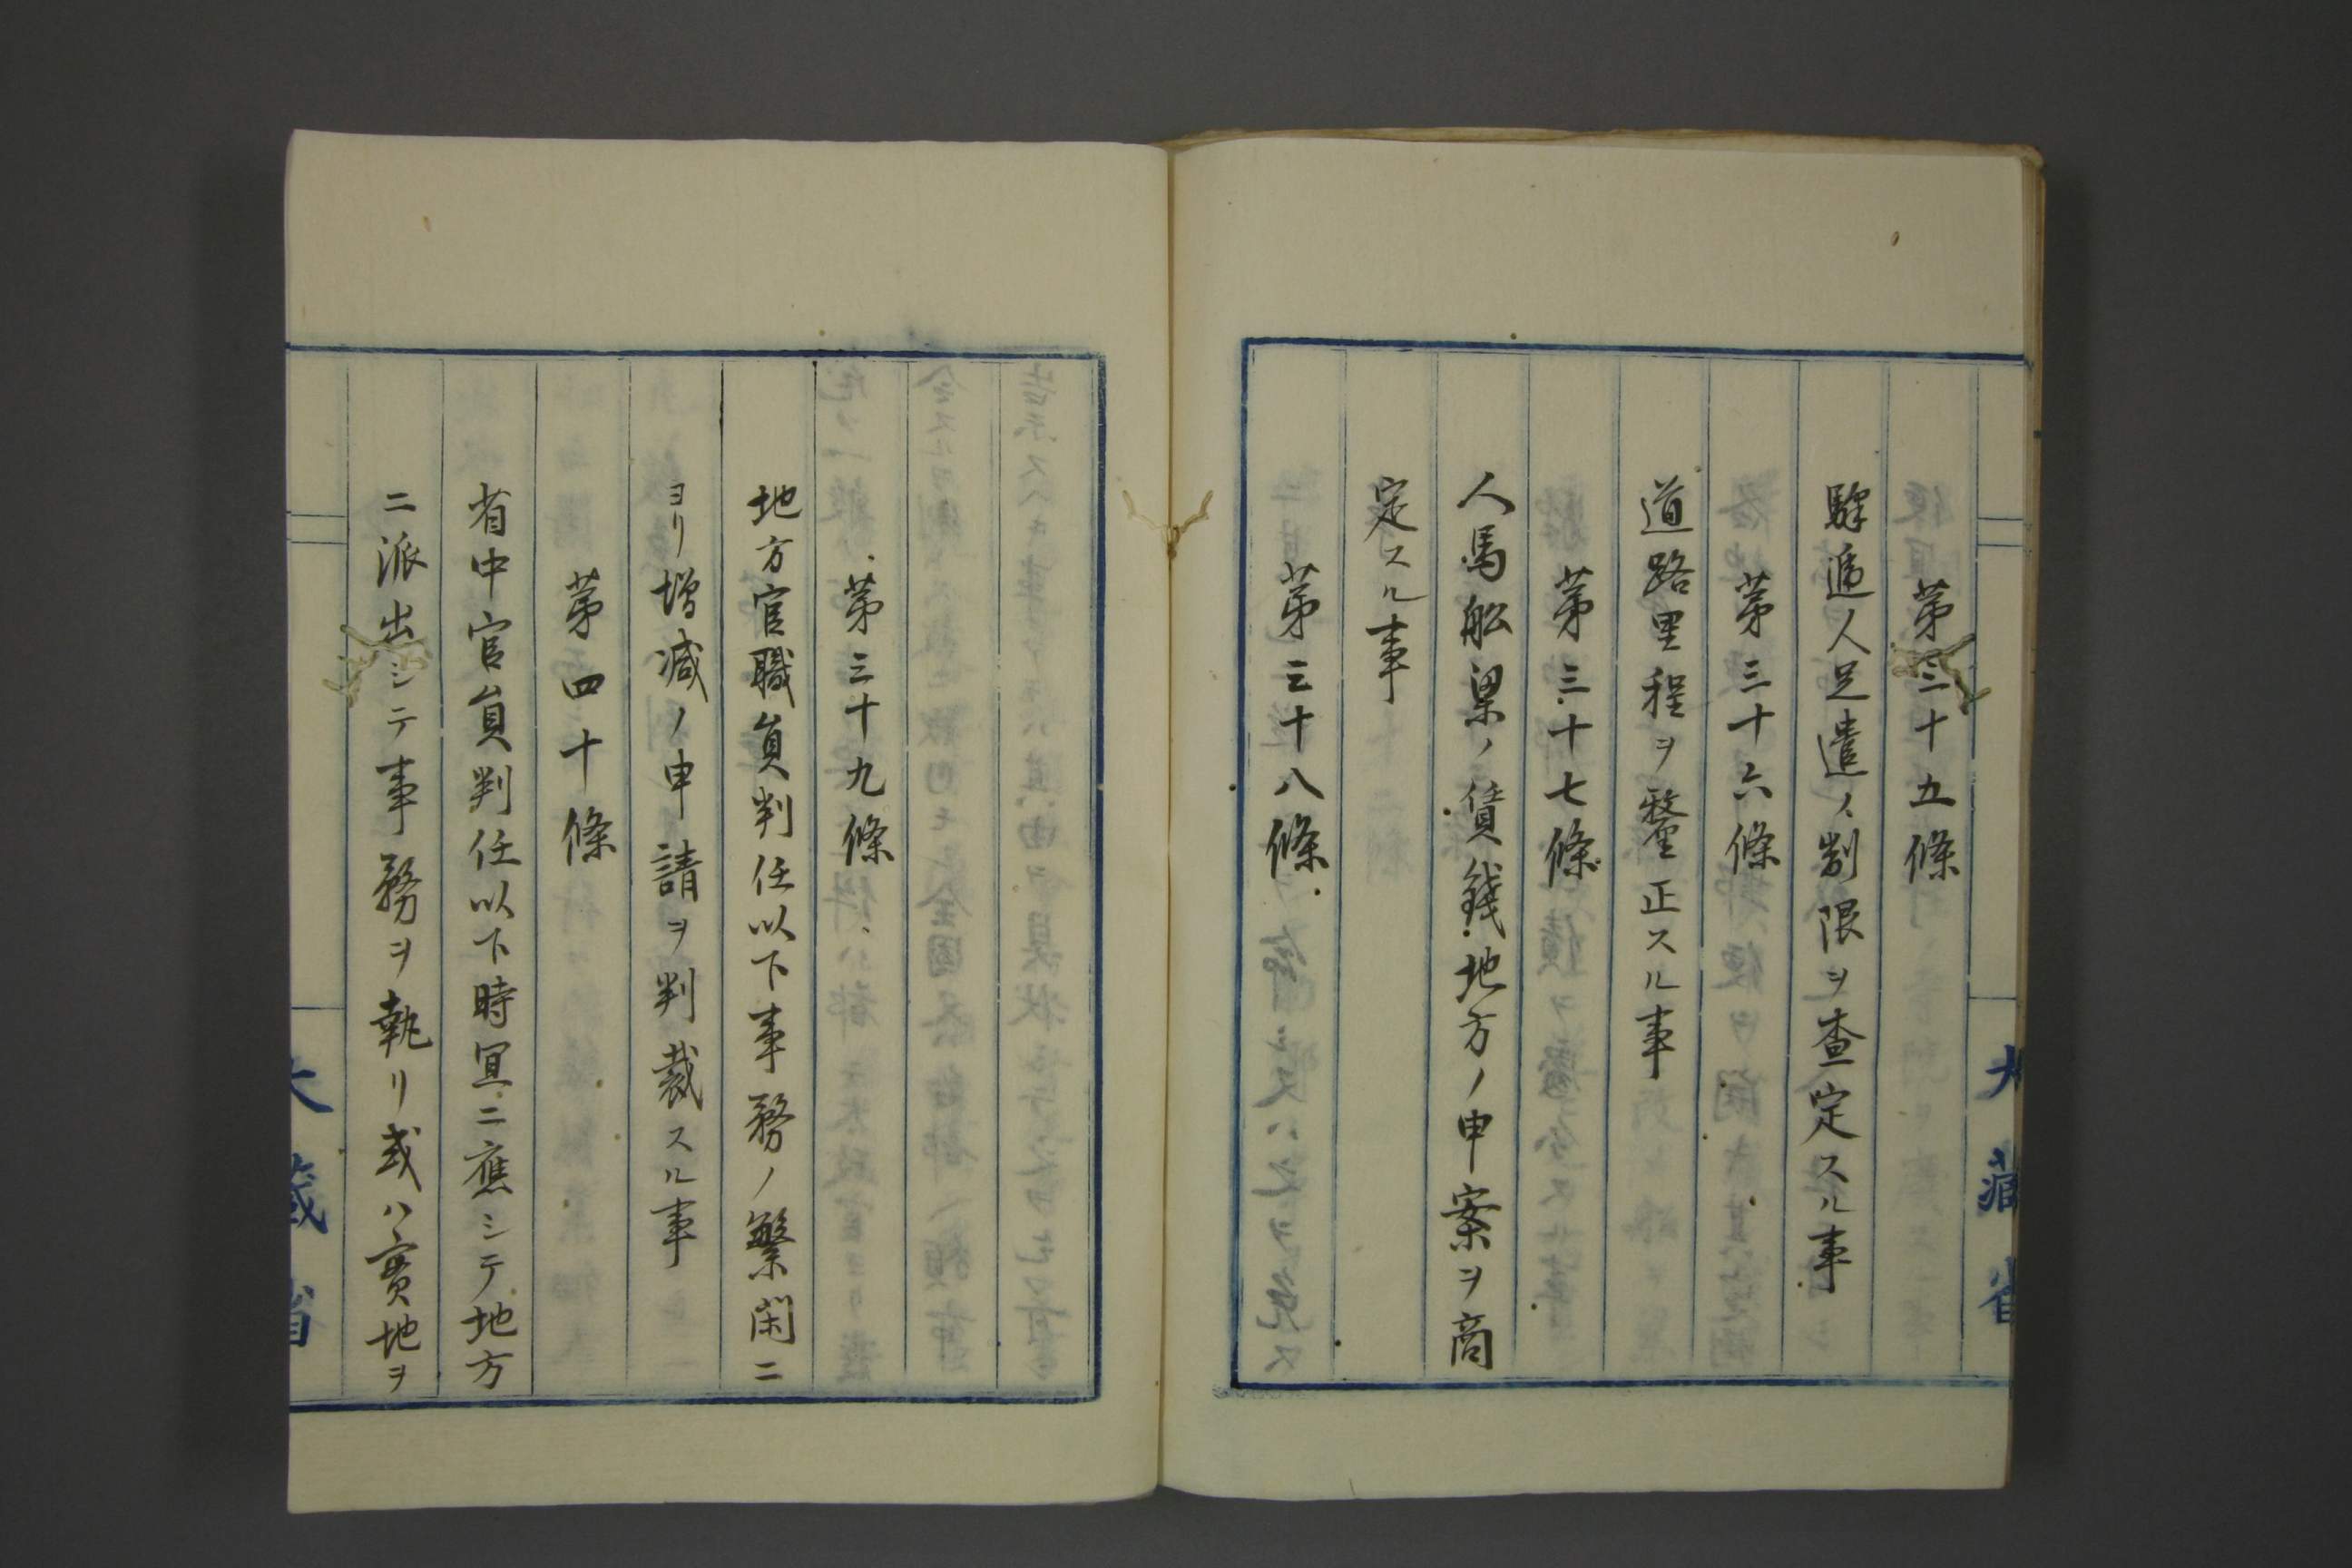 第三十五條
驛遞人足遣ノ割限ヲ査定スル事
第三十六條
道路里程ヲ釐正スル事
第三十七條
人馬舩梁ノ賃錢地方ノ申案ヲ商
定スル事
第三十八條
大藏省
第三十九條
地方官職員判任以下事務ノ繁閑ニ
ヨリ增減ノ申請ヲ判裁スル事
第四十條
省中官員判任以下時宜ニ應シテ地方
ニ派出シテ事務ヲ執リ或ハ實地ヲ
大藏省